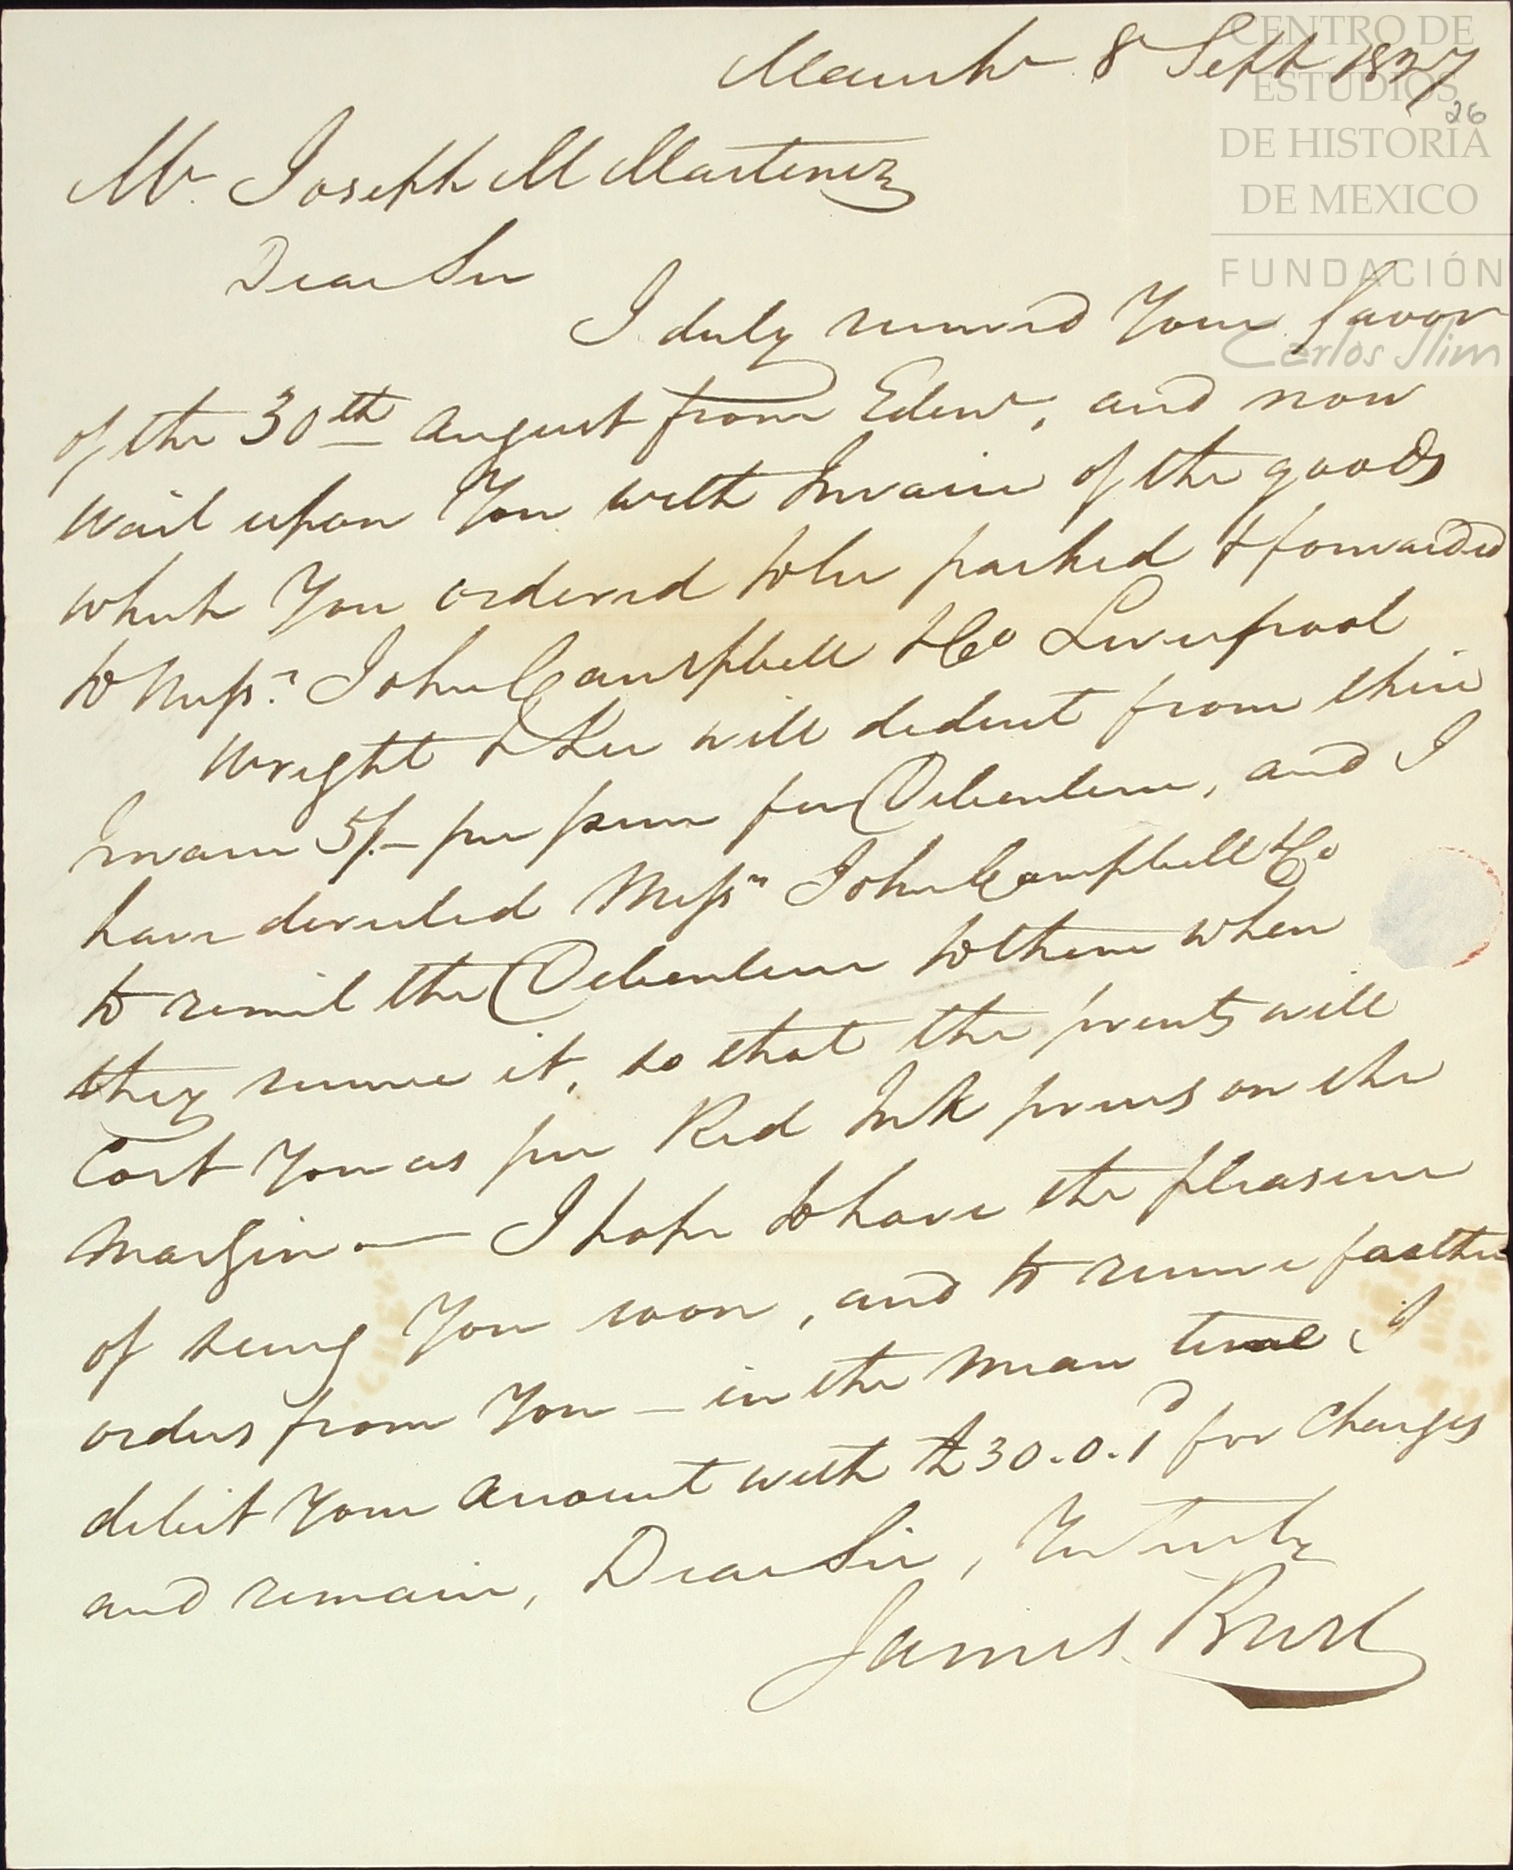 Manchr 8 Sept 1827
26
Mr. Joseph M Martinez
Dear Sir
I duly received Your favor
of the 30th August from Edinr, and now
wait upon You with Invoice of the goods
which You ordered to be packed & forwarded
to Messrs. John Campbell & Co Liverpool
Wright & Lee will deduct from their
Invoice 5/- per piece for Debenture, and I
have directed Messrs John Campbell & Co
to remit the Debenture to them when
they receive it, so that the prints will
Cost You as per Red Ink prices on the
Margin — I hope to have the pleasure
of seeing You soon, and to receive farther
orders from You — in the mean time I
debit Your Account with £30.0.1d for Charges
and remain, Dear Sir, Yrs Truly
James Burt
CENTRO DE
ESTUDIOS
DE HISTORIA
DE MEXICO
FUNDACIÓN
Carlos Slim